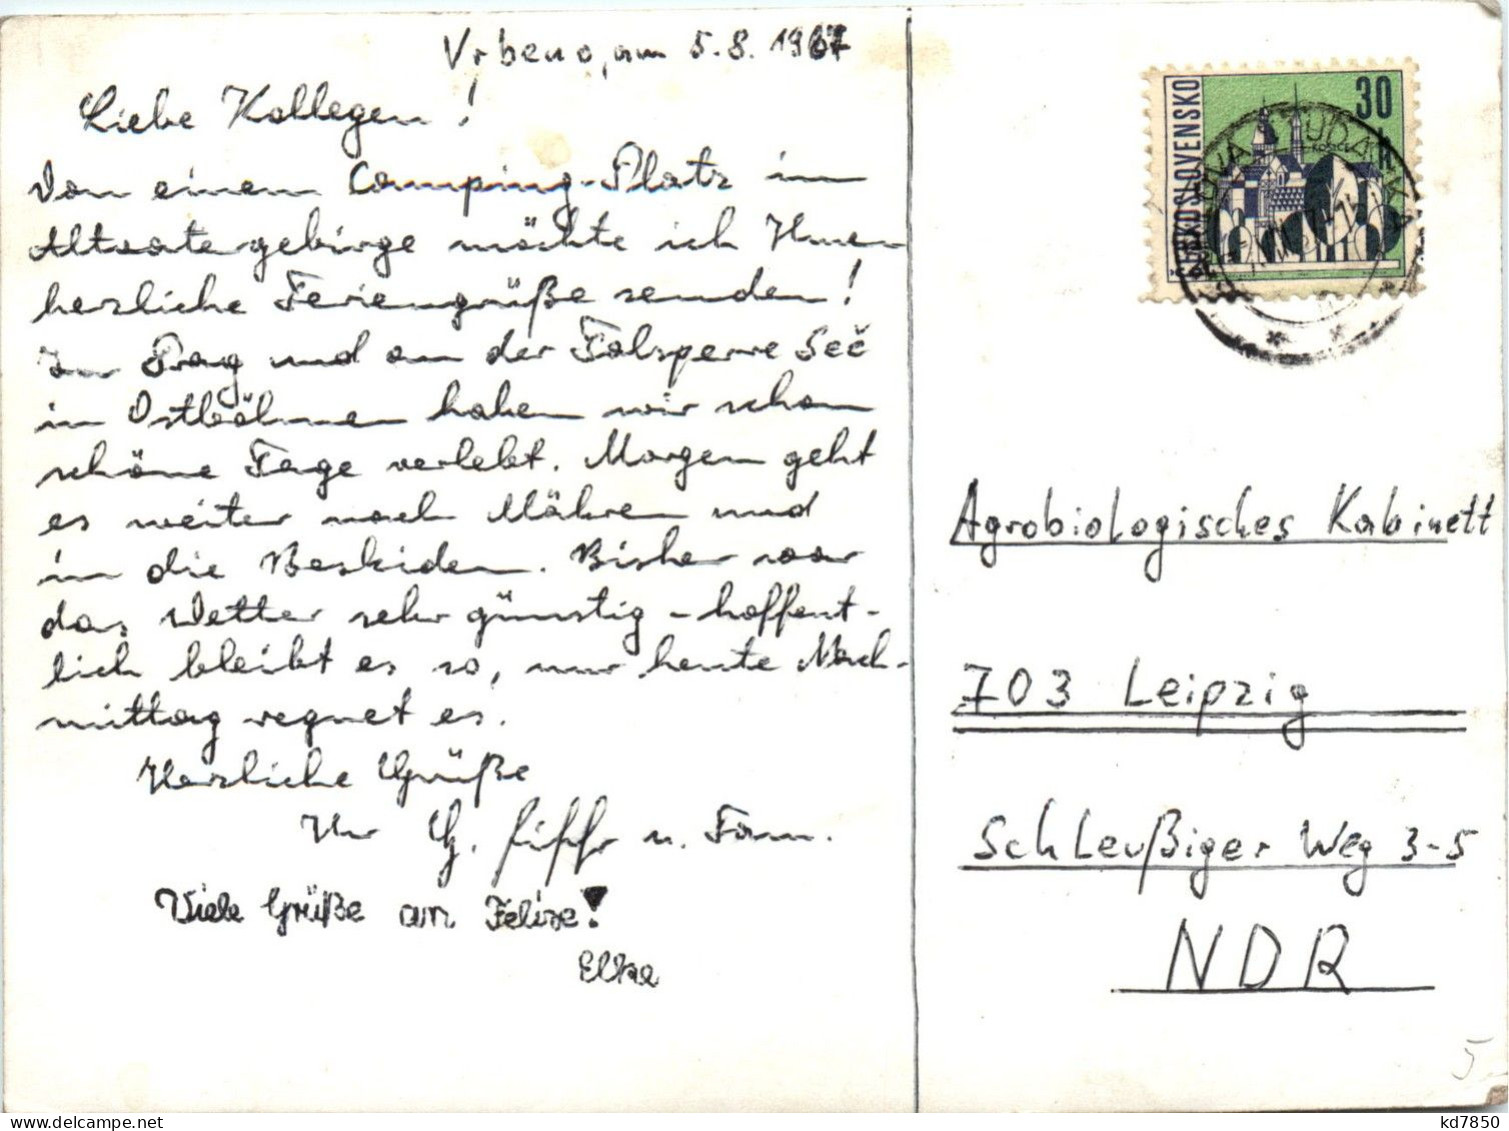 Vrbeno, am 5.8.1967
Liebe Kollegen!
Von einem Camping-Platz im
Altvatergebirge möchte ich Ihnen
herzliche Feriengrüße senden!
In Prag und an der Talsperre Seč
in Ostböhmen haben wir schon
schöne Tage verlebt. Morgen geht
es weiter nach Mähren und
in die Beskiden. Bisher war
das Wetter sehr günstig - hoffent-
lich bleibt es so, nur heute Nach-
mittag regnet es.
Herzliche Grüße
Ihr G. u. Fam.
Viele Grüße an
Elke
ČESKOSLOVENSKO
30 h
KOŠICE
Agrobiologisches Kabinett
703 Leipzig
Schleußiger Weg 3-5
NDR
5
kd7850